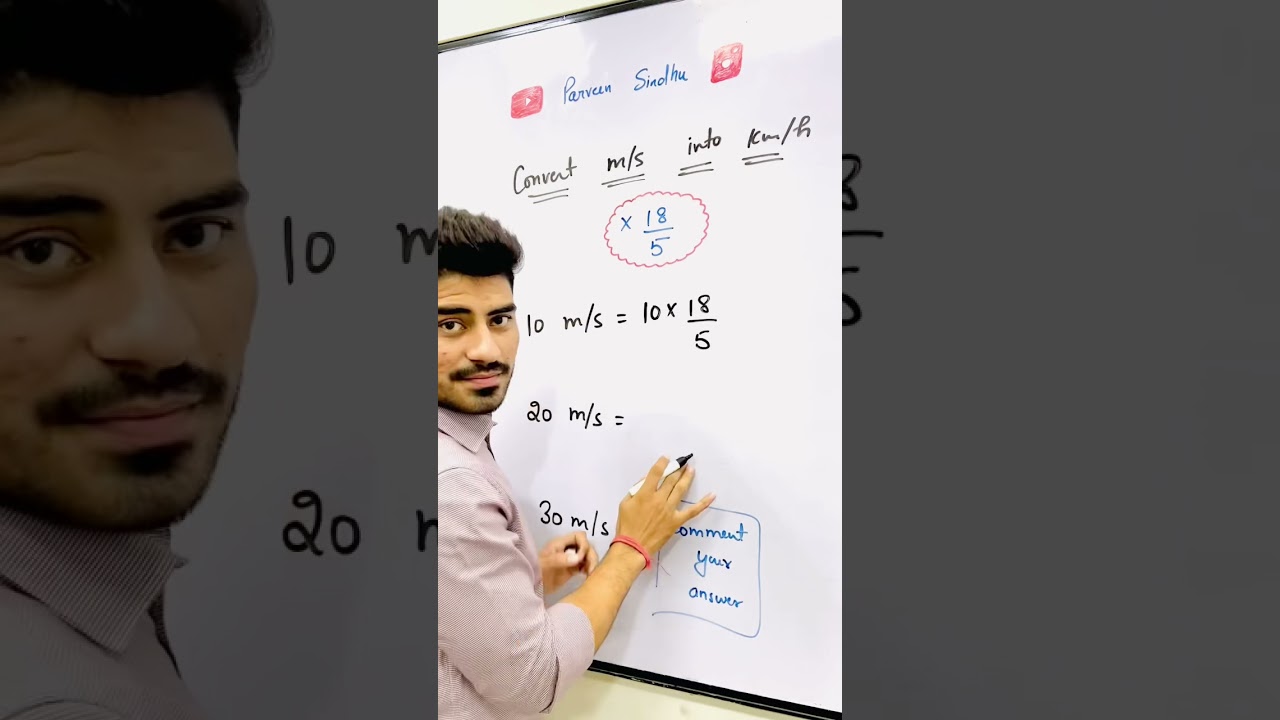 Parveen Sindhu
Convert m/s into km/h
× 18/5
10 m/s = 10 × 18/5
20 m/s =
30 m/s
comment
your
answer
10 m
8
5
20